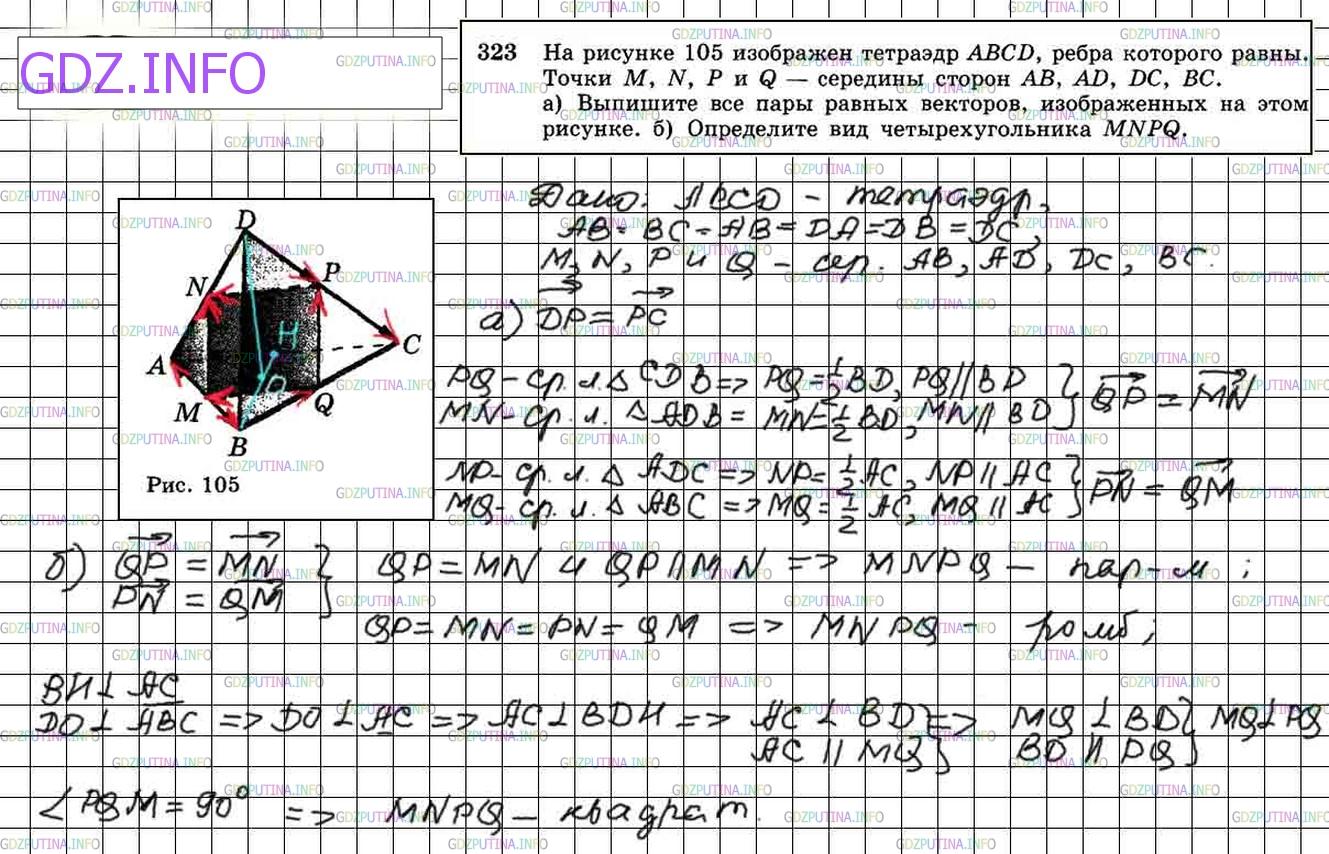 GDZ.INFO
323 На рисунке 105 изображен тетраэдр ABCD, ребра которого равны.
Точки M, N, P и Q — середины сторон AB, AD, DC, BC.
а) Выпишите все пары равных векторов, изображенных на этом
рисунке. б) Определите вид четырехугольника MNPQ.
Дано: ABCD - тетраэдр,
AB = BC = AB = DA = DB = DC,
M, N, P и Q - сер. AB, AD, DC, BC.
D
N
P
H
A
C
O
M
Q
B
Рис. 105
а) DP = PC
PQ - ср. л. △ CDB => PQ = 1/2 BD, PQ || BD } QP = MN
MN - ср. л. △ ADB = MN = 1/2 BD, MN || BD }
NP - ср. л. △ ADC => NP = 1/2 AC, NP || AC } PN = QM
MQ - ср. л. △ ABC => MQ = 1/2 AC, MQ || AC }
б) QP = MN } QP = MN и QP || MN => MNPQ - пар-м;
PN = QM }
QP = MN = PN = QM => MNPQ - ромб;
BH ⊥ AC
DO ⊥ ABC => DO ⊥ AC => AC ⊥ BDH => AC ⊥ BD } => MQ ⊥ BD } MQ ⊥ PQ
AC || MQ } BD || PQ }
∠ PQM = 90° => MNPQ - квадрат.
GDZPUTINA.INFO